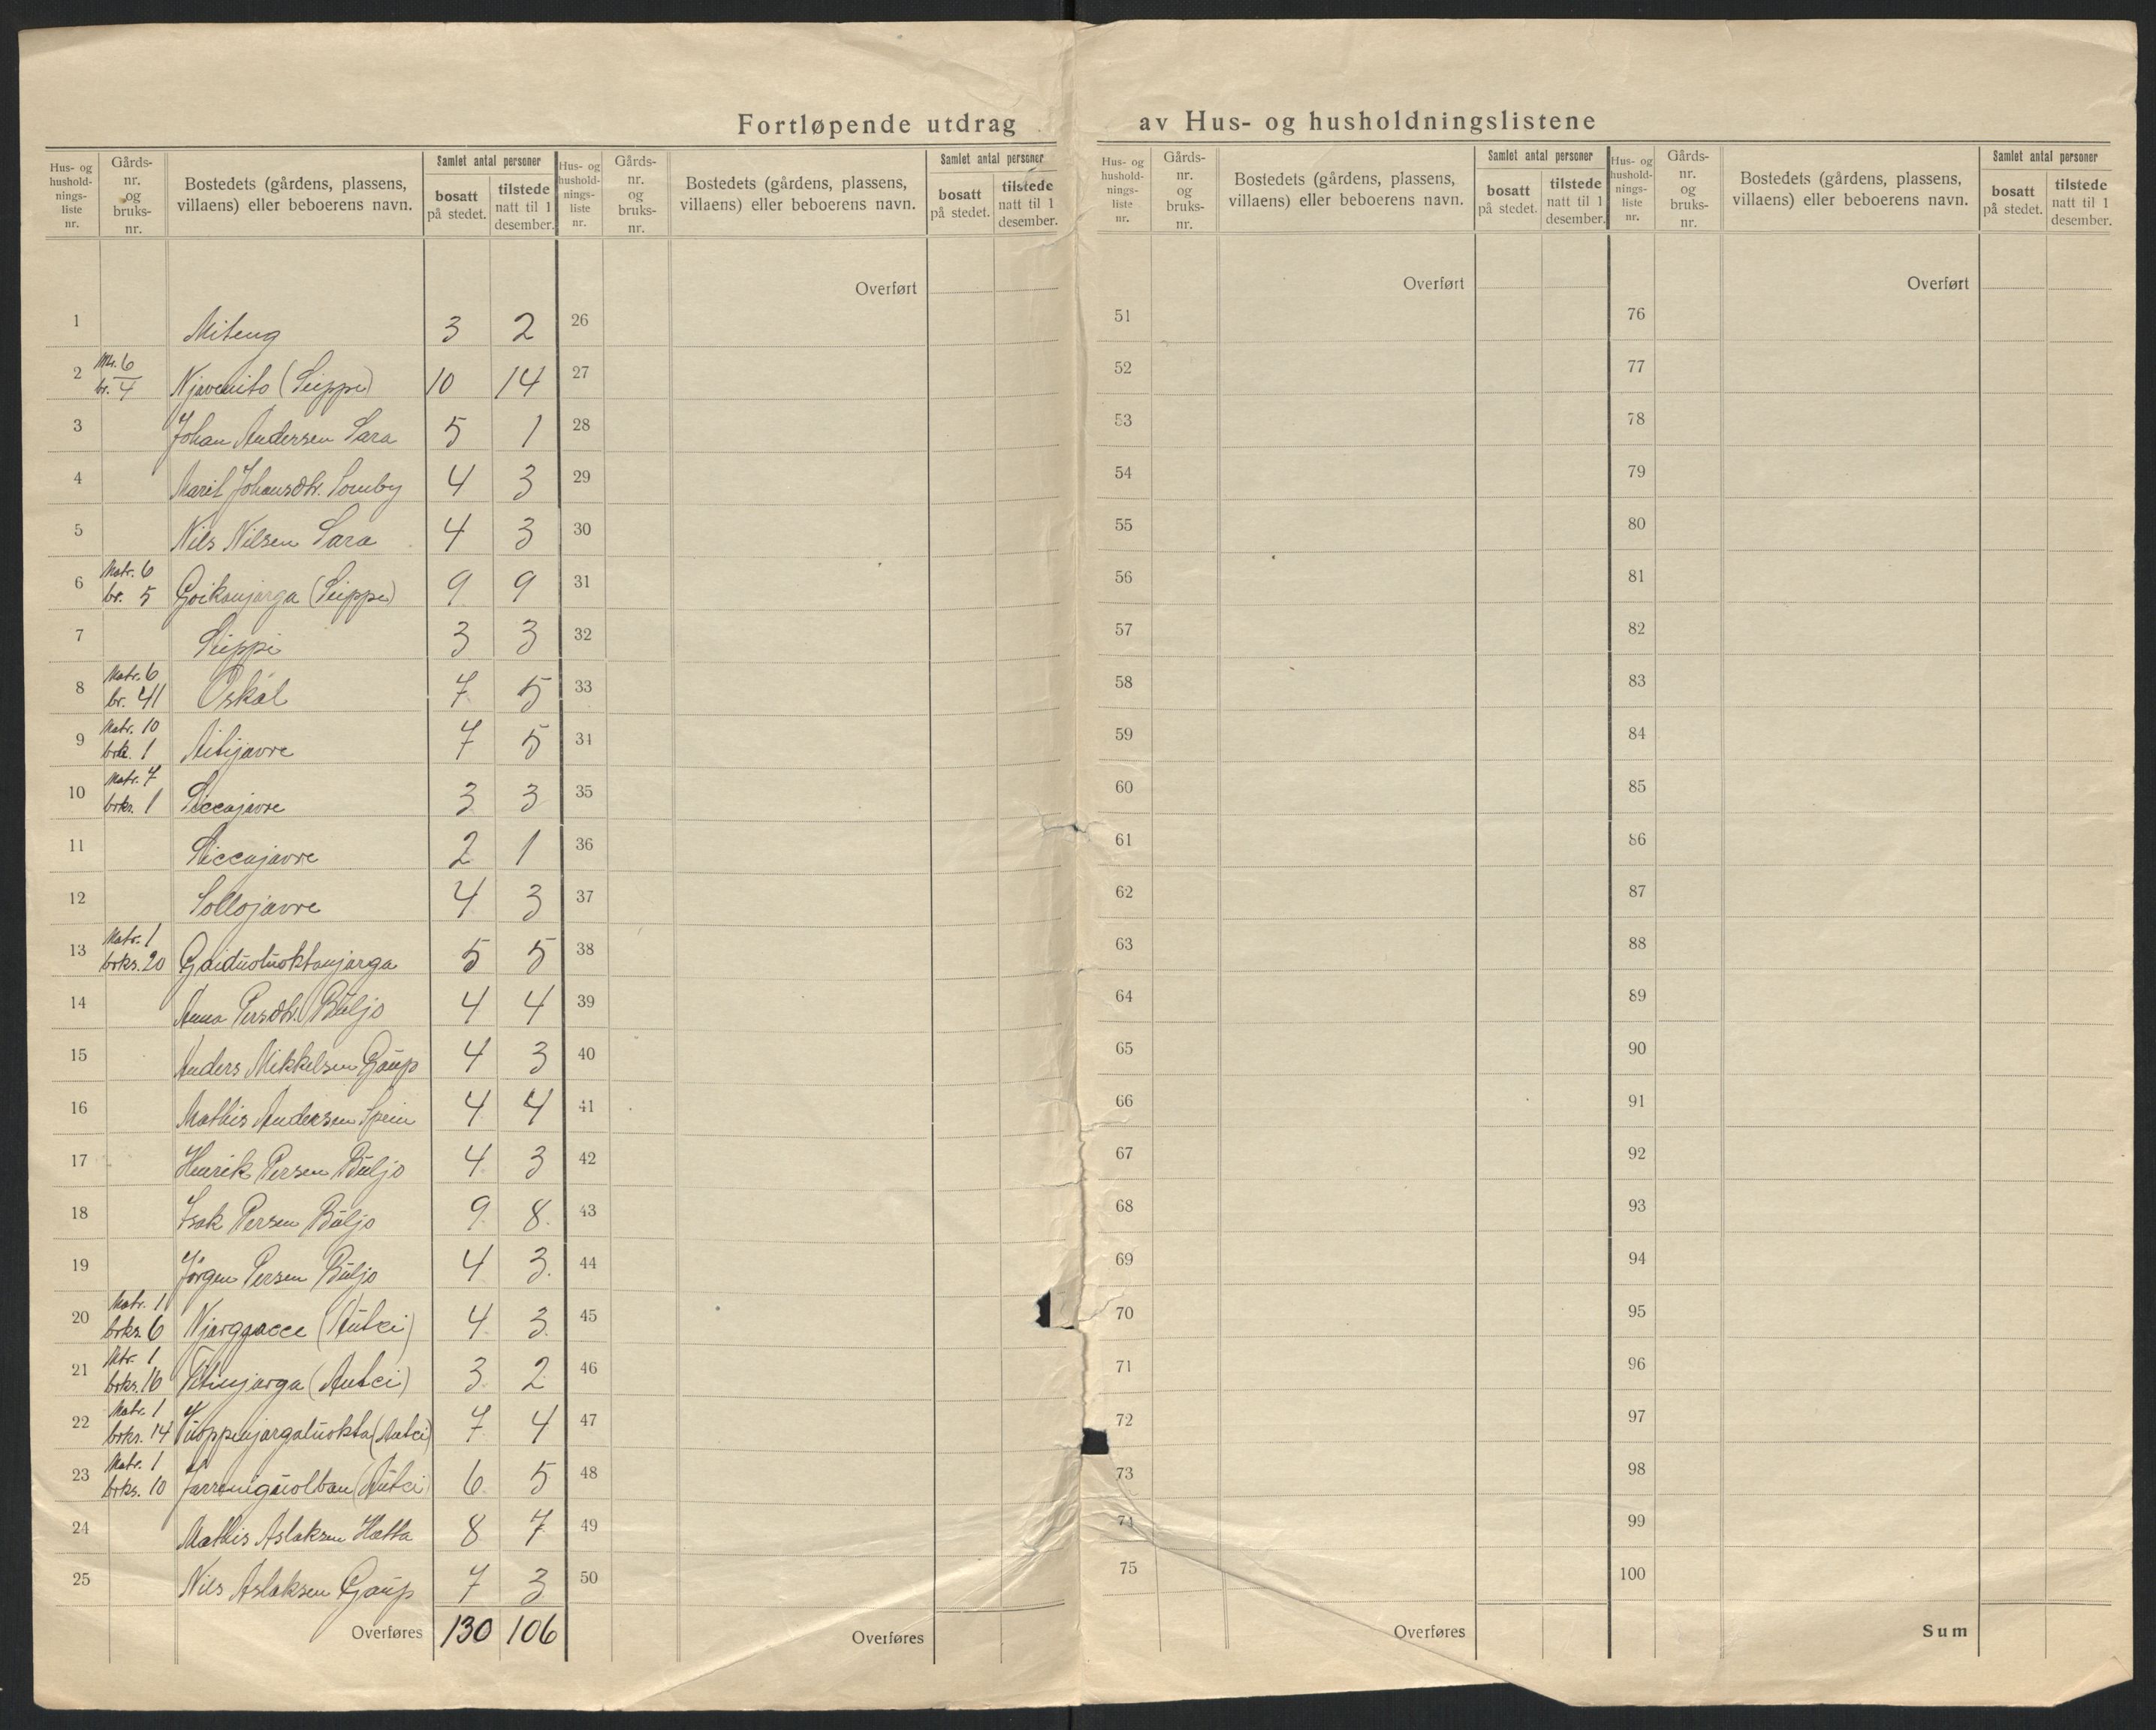 Fortløpende utdrag av Hus- og husholdningslistene
Hus- og hushold-nings-liste nr. Gårds-nr. og bruks-nr. Bostedets (gårdens, plassens, villaens) eller beboerens navn. Samlet antal personer bosatt på stedet. tilstede natt til 1 desember.
Hus- og hushold-nings-liste nr. Gårds-nr. og bruks-nr. Bostedets (gårdens, plassens, villaens) eller beboerens navn. Samlet antal personer bosatt på stedet. tilstede natt til 1 desember.
Hus- og hushold-nings-liste nr. Gårds-nr. og bruks-nr. Bostedets (gårdens, plassens, villaens) eller beboerens navn. Samlet antal personer bosatt på stedet. tilstede natt til 1 desember.
Hus- og hushold-nings-liste nr. Gårds-nr. og bruks-nr. Bostedets (gårdens, plassens, villaens) eller beboerens navn. Samlet antal personer bosatt på stedet. tilstede natt til 1 desember.
1 Miteng 3 2
2 Mr. 6 br. 4 (Sieppi) 10 14
3 Johan Andersen Sara 5 1
4 Marit Johansdtr. Somby 4 3
5 Nils Nilsen Sara 4 3
6 Matr. 6 br. 5 Goikanjarga (Sieppi) 9 9
7 Sieppi 3 3
8 Matr. 6 br. 41 Oskal 7 5
9 Matr. 10 brk. 1 Aitijavre 7 5
10 Matr. 7 brks. 1 Siccajavre 3 3
11 Siccajavre 2 1
12 Sollojavre 4 3
13 Matr. 1 brks. 20 Gaiduoluoktanjarga 5 5
14 Anna Persdtr. Buljo 4 4
15 Anders Mikkelsen Gaup 4 3
16 Mathis Andersen Spein 4 4
17 Henrik Persen Buljo 4 3
18 Isak Persen Buljo 9 8
19 Jørgen Persen Buljo 4 3
20 Matr. 1 brks. 6 Njarggacce (Autci) 4 3
21 Mtr. 1 brks. 16 (Autci) 3 2
22 Matr. 1 brks. 14 Vuoppenjargaluokta (Autci) 7 4
23 Matr. 1 brks. 10 (Autci) 6 5
24 Mathis Aslaksen Hætta 8 7
25 Nils Aslaksen Gaup 7 3
Overføres 130 106
Overført
26
27
28
29
30
31
32
33
34
35
36
37
38
39
40
41
42
43
44
45
46
47
48
49
50
Overføres
Overført
51
52
53
54
55
56
57
58
59
60
61
62
63
64
65
66
67
68
69
70
71
72
73
74
75
Overføres
Overført
76
77
78
79
80
81
82
83
84
85
86
87
88
89
90
91
92
93
94
95
96
97
98
99
100
Sum